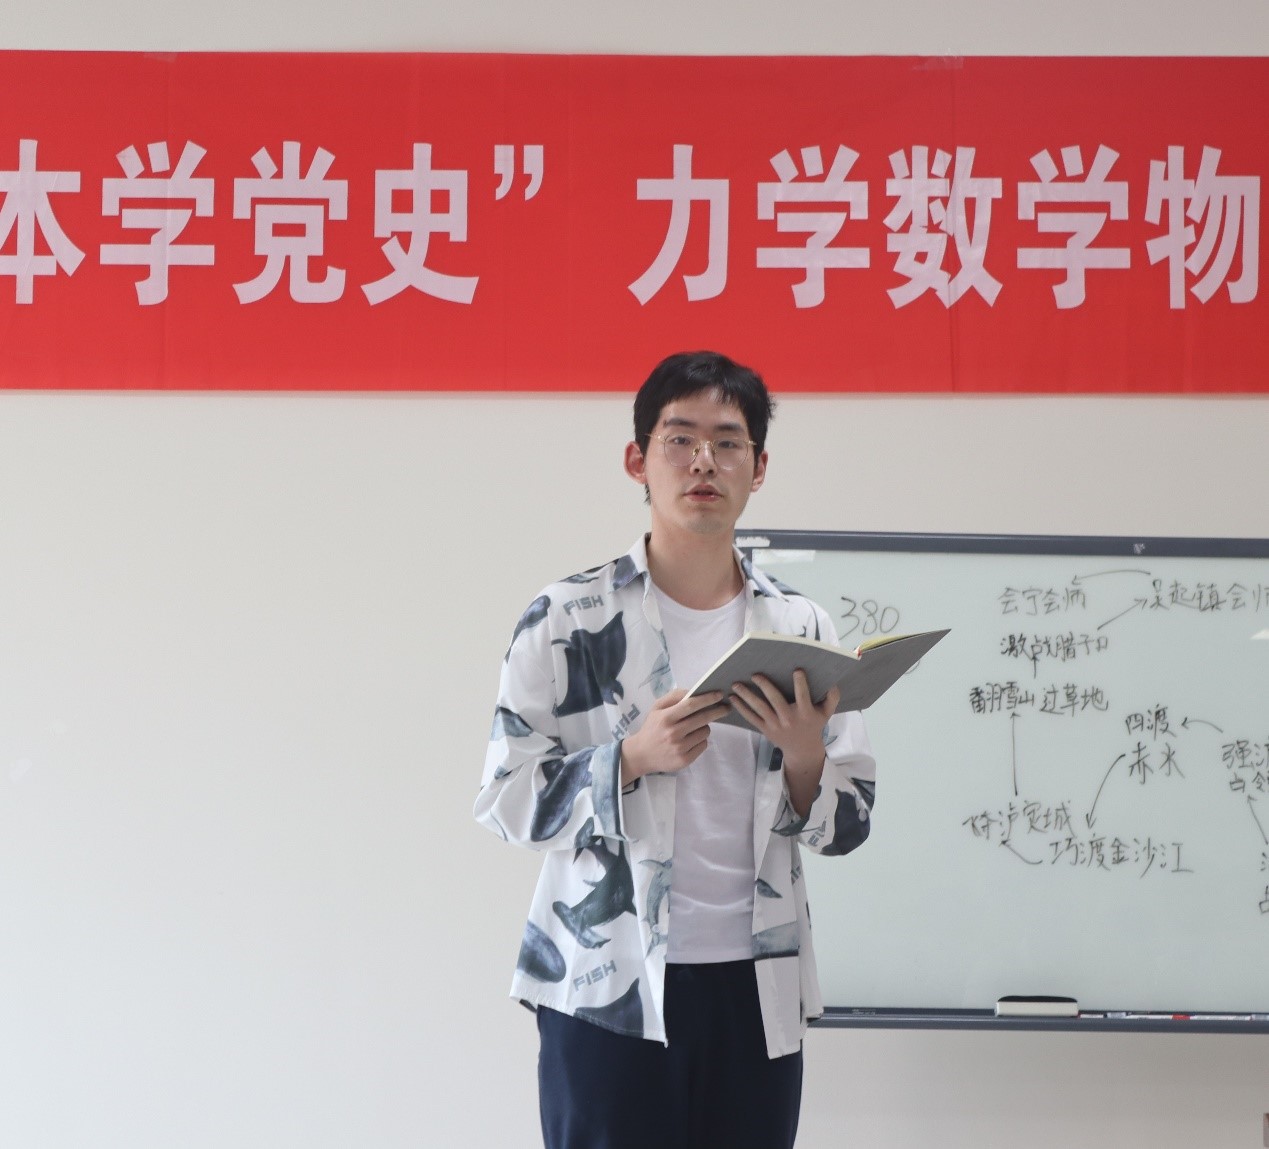 本学党史” 力学数学物
FISH
380
会宁会师
吴起镇会师
激战腊子口
翻雪山 过草地
四渡
赤水
强渡
泸定城
巧渡金沙江
FISH